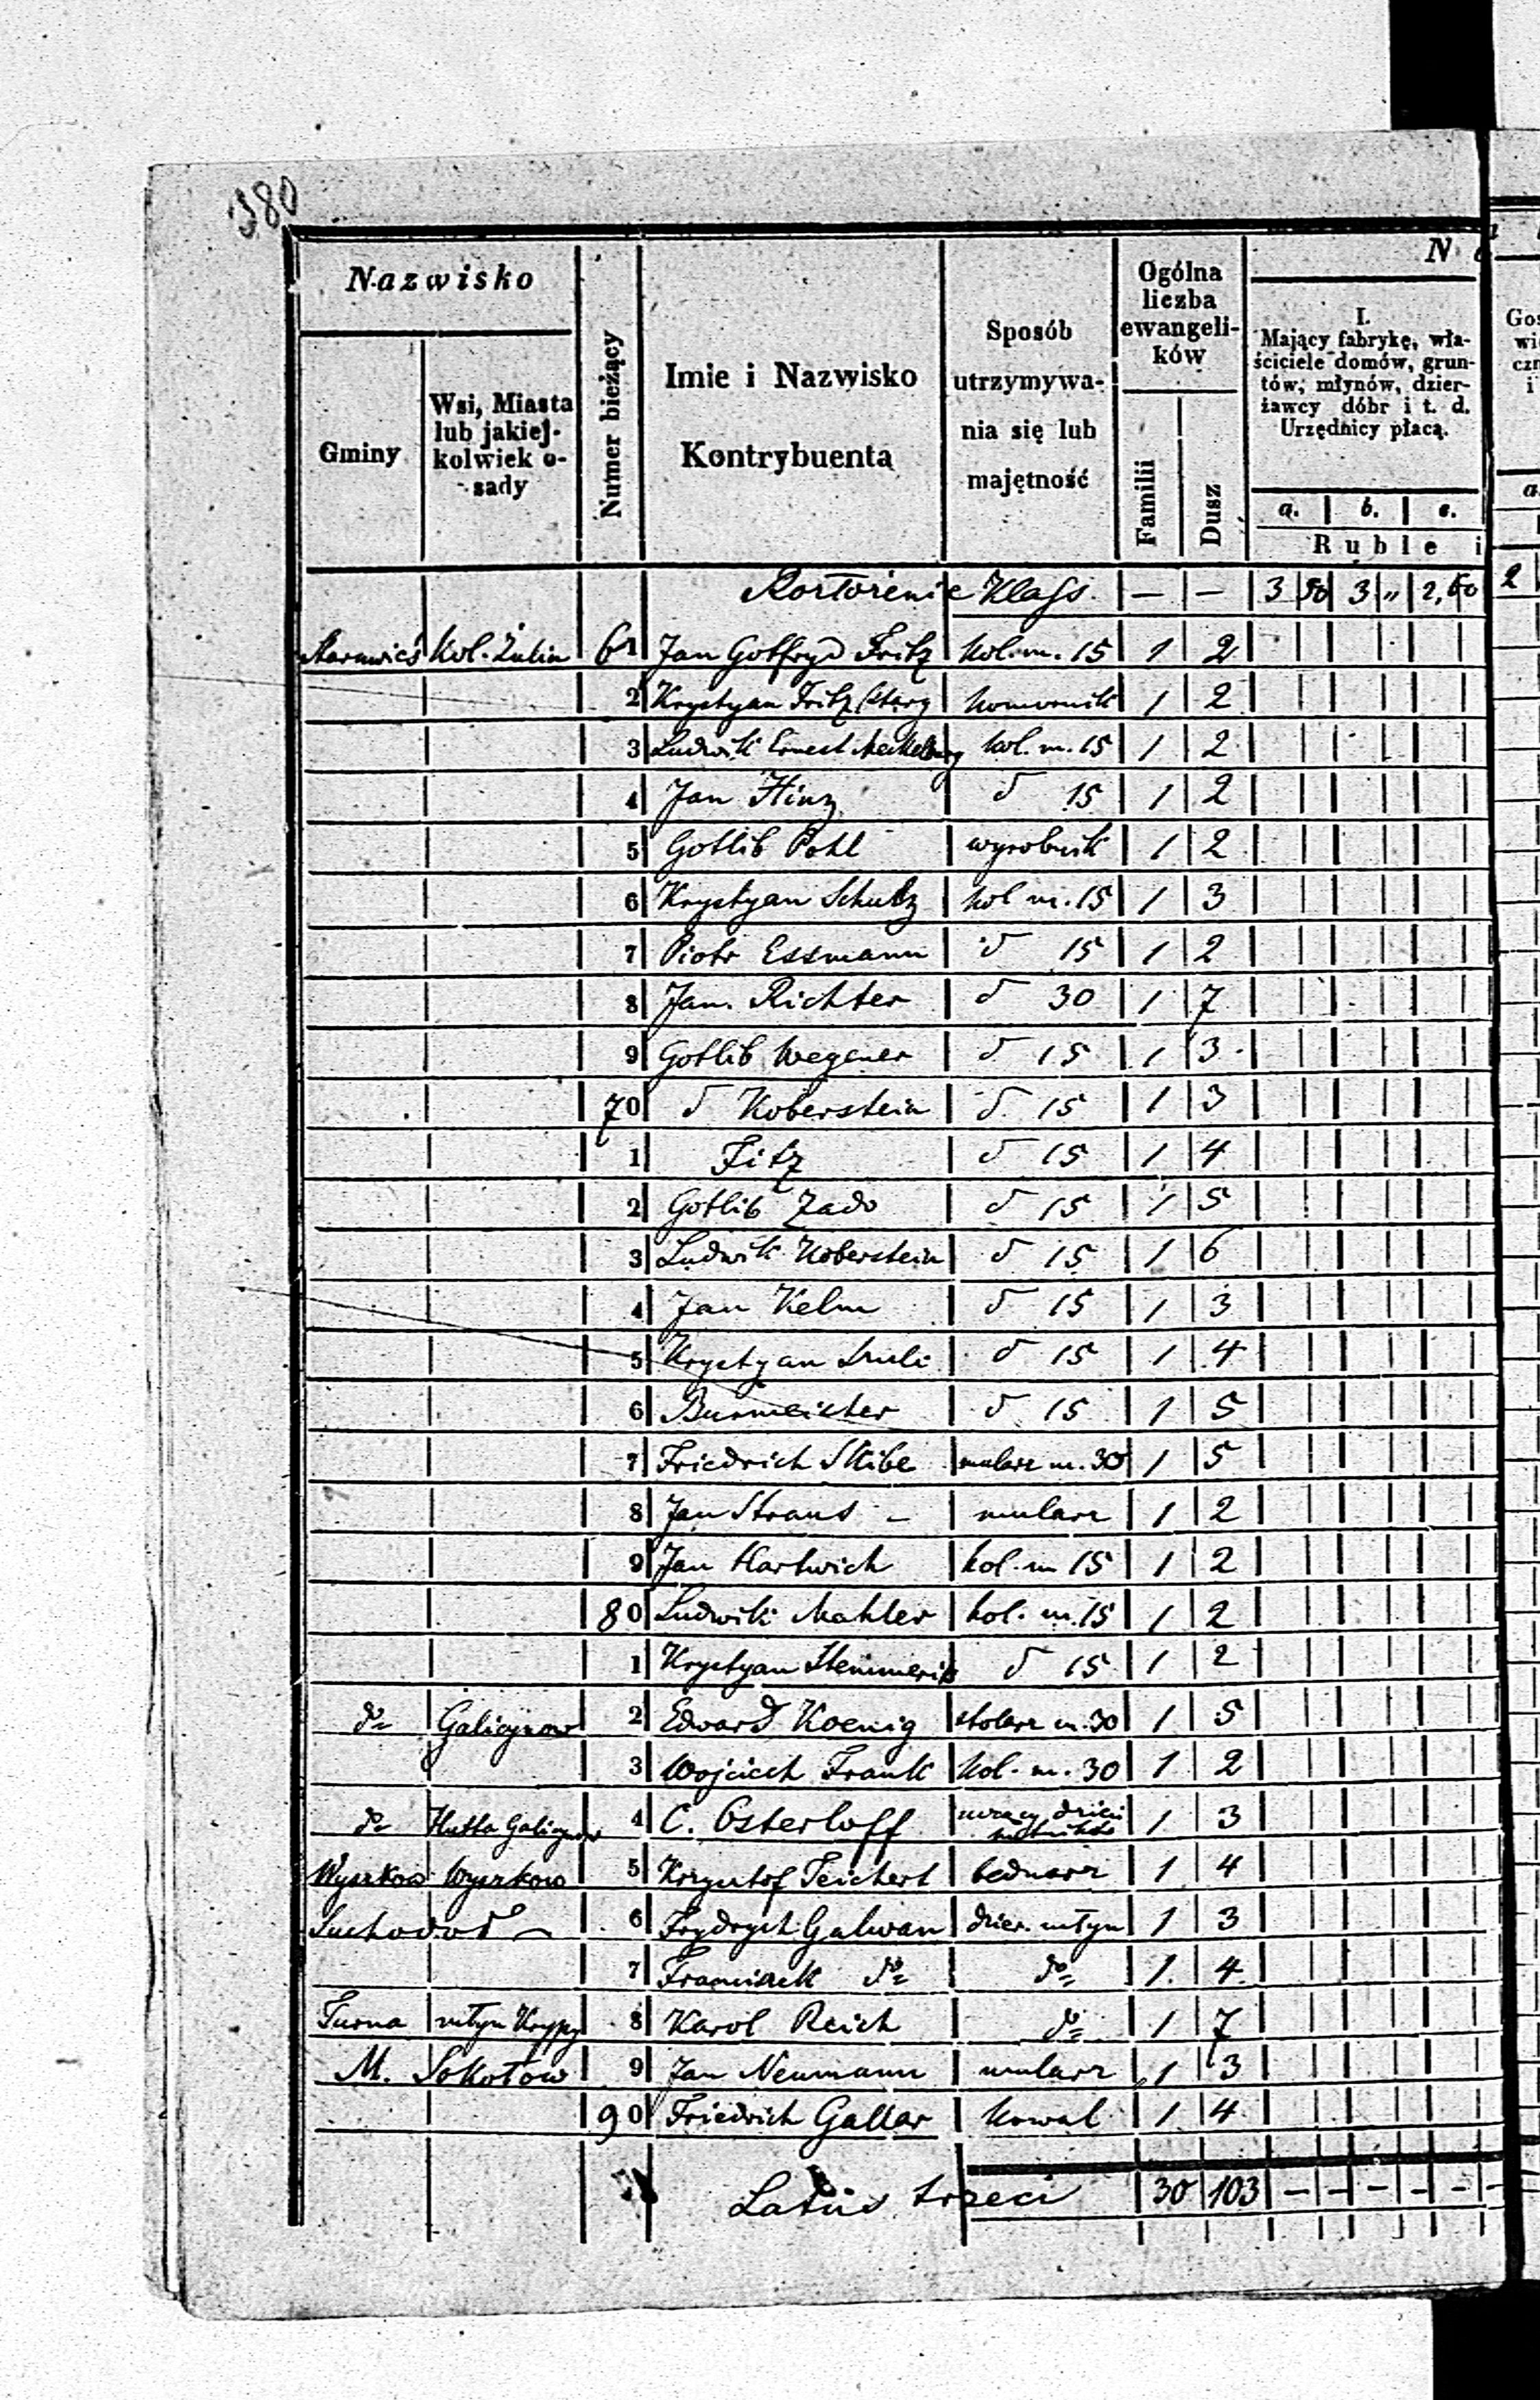 380
Nazwisko
Gminy
Wsi, Miasta lub jakiej-kolwiek o-sady
Numer bieżący
Imie i Nazwisko Kontrybuenta
Sposób utrzymywa-nia się lub majętność
Ogólna liczba ewangeli-ków
Familii
Dusz
N
I.
Mający fabrykę, wła-
ściciele domów, grun-
tów, młynów, dzier-
żawcy dóbr i t. d.
Urzędnicy płacą.
a. b. c.
Ruble i
Rozłożenie Klass. — — 3 50 3 „ 2,50 2
Starawieś Kol. Żulin 61 Jan Gotfryd Fritz kol. m. 15 1 2
2 Krystyan Fritz stary komornik 1 2
3 Ludwik Ernest Meckelburg kol. m. 15 1 2
4 Jan Hinz d 15 1 2
5 Gotlib Pohl wyrobnik 1 2
6 Krystyan Schulz kol m. 15 1 3
7 Piotr Essmann d 15 1 2
8 Jan Richter d 30 1 7
9 Gotlib Wegener d 15 1 3
70 d Koberstein d 15 1 3
1 Fitz d 15 1 4
2 Gotlib Zado d 15 1 5
3 Ludwik Koberstein d 15 1 6
4 Jan Kelm d 15 1 3
5 Krystyan d 15 1 4
6 Burmeister d 15 1 5
7 Friedrich Skibe mularz m. 30 1 5
8 Jan Straus - mularz 1 2
9 Jan Hartwich kol. m 15 1 2
80 Ludwik Mahler kol. m. 15 1 2
1 Krystyan d 15 1 2
do Galicynow 2 Edward Koenig stolarz m. 30 1 5
3 Wojciech Frank kol. m. 30 1 2
do Hutta Galicynow 4 C. Osterloff uczący dzieci 1 3
Wyszkow Wyszkow 5 Krzysztof Teichert bednarz 1 4
6 Frydrych Galwan dzier. młyn 1 3
7 Franciszek do do 1 4
Turna młyn Krypy 8 Karol Reich do 1 7
M. Sokołow 9 Jan Neumann mularz 1 3
90 Friedrich Gallar kowal 1 4
Latus trzeci 30 103 — — — — — —